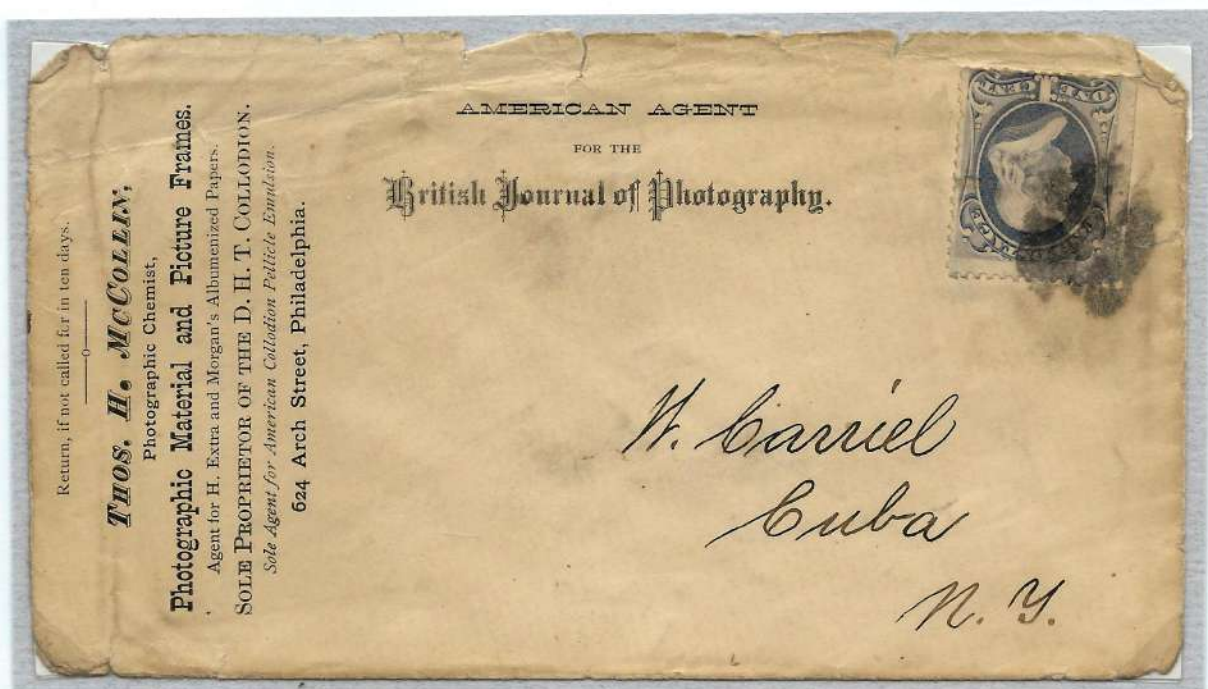 Return, if not called for in ten days.
THOS. H. MCCOLLIN,
Photographic Chemist,
Photographic Material and Picture Frames.
Agent for H. Extra and Morgan's Albumenized Papers.
SOLE PROPRIETOR OF THE D. H. T. COLLODION.
Sole Agent for American Collodion Pellicle Emulsion.
624 Arch Street, Philadelphia.
AMERICAN AGENT
FOR THE
British Journal of Photography.
W. Carriel
Cuba
N. Y.